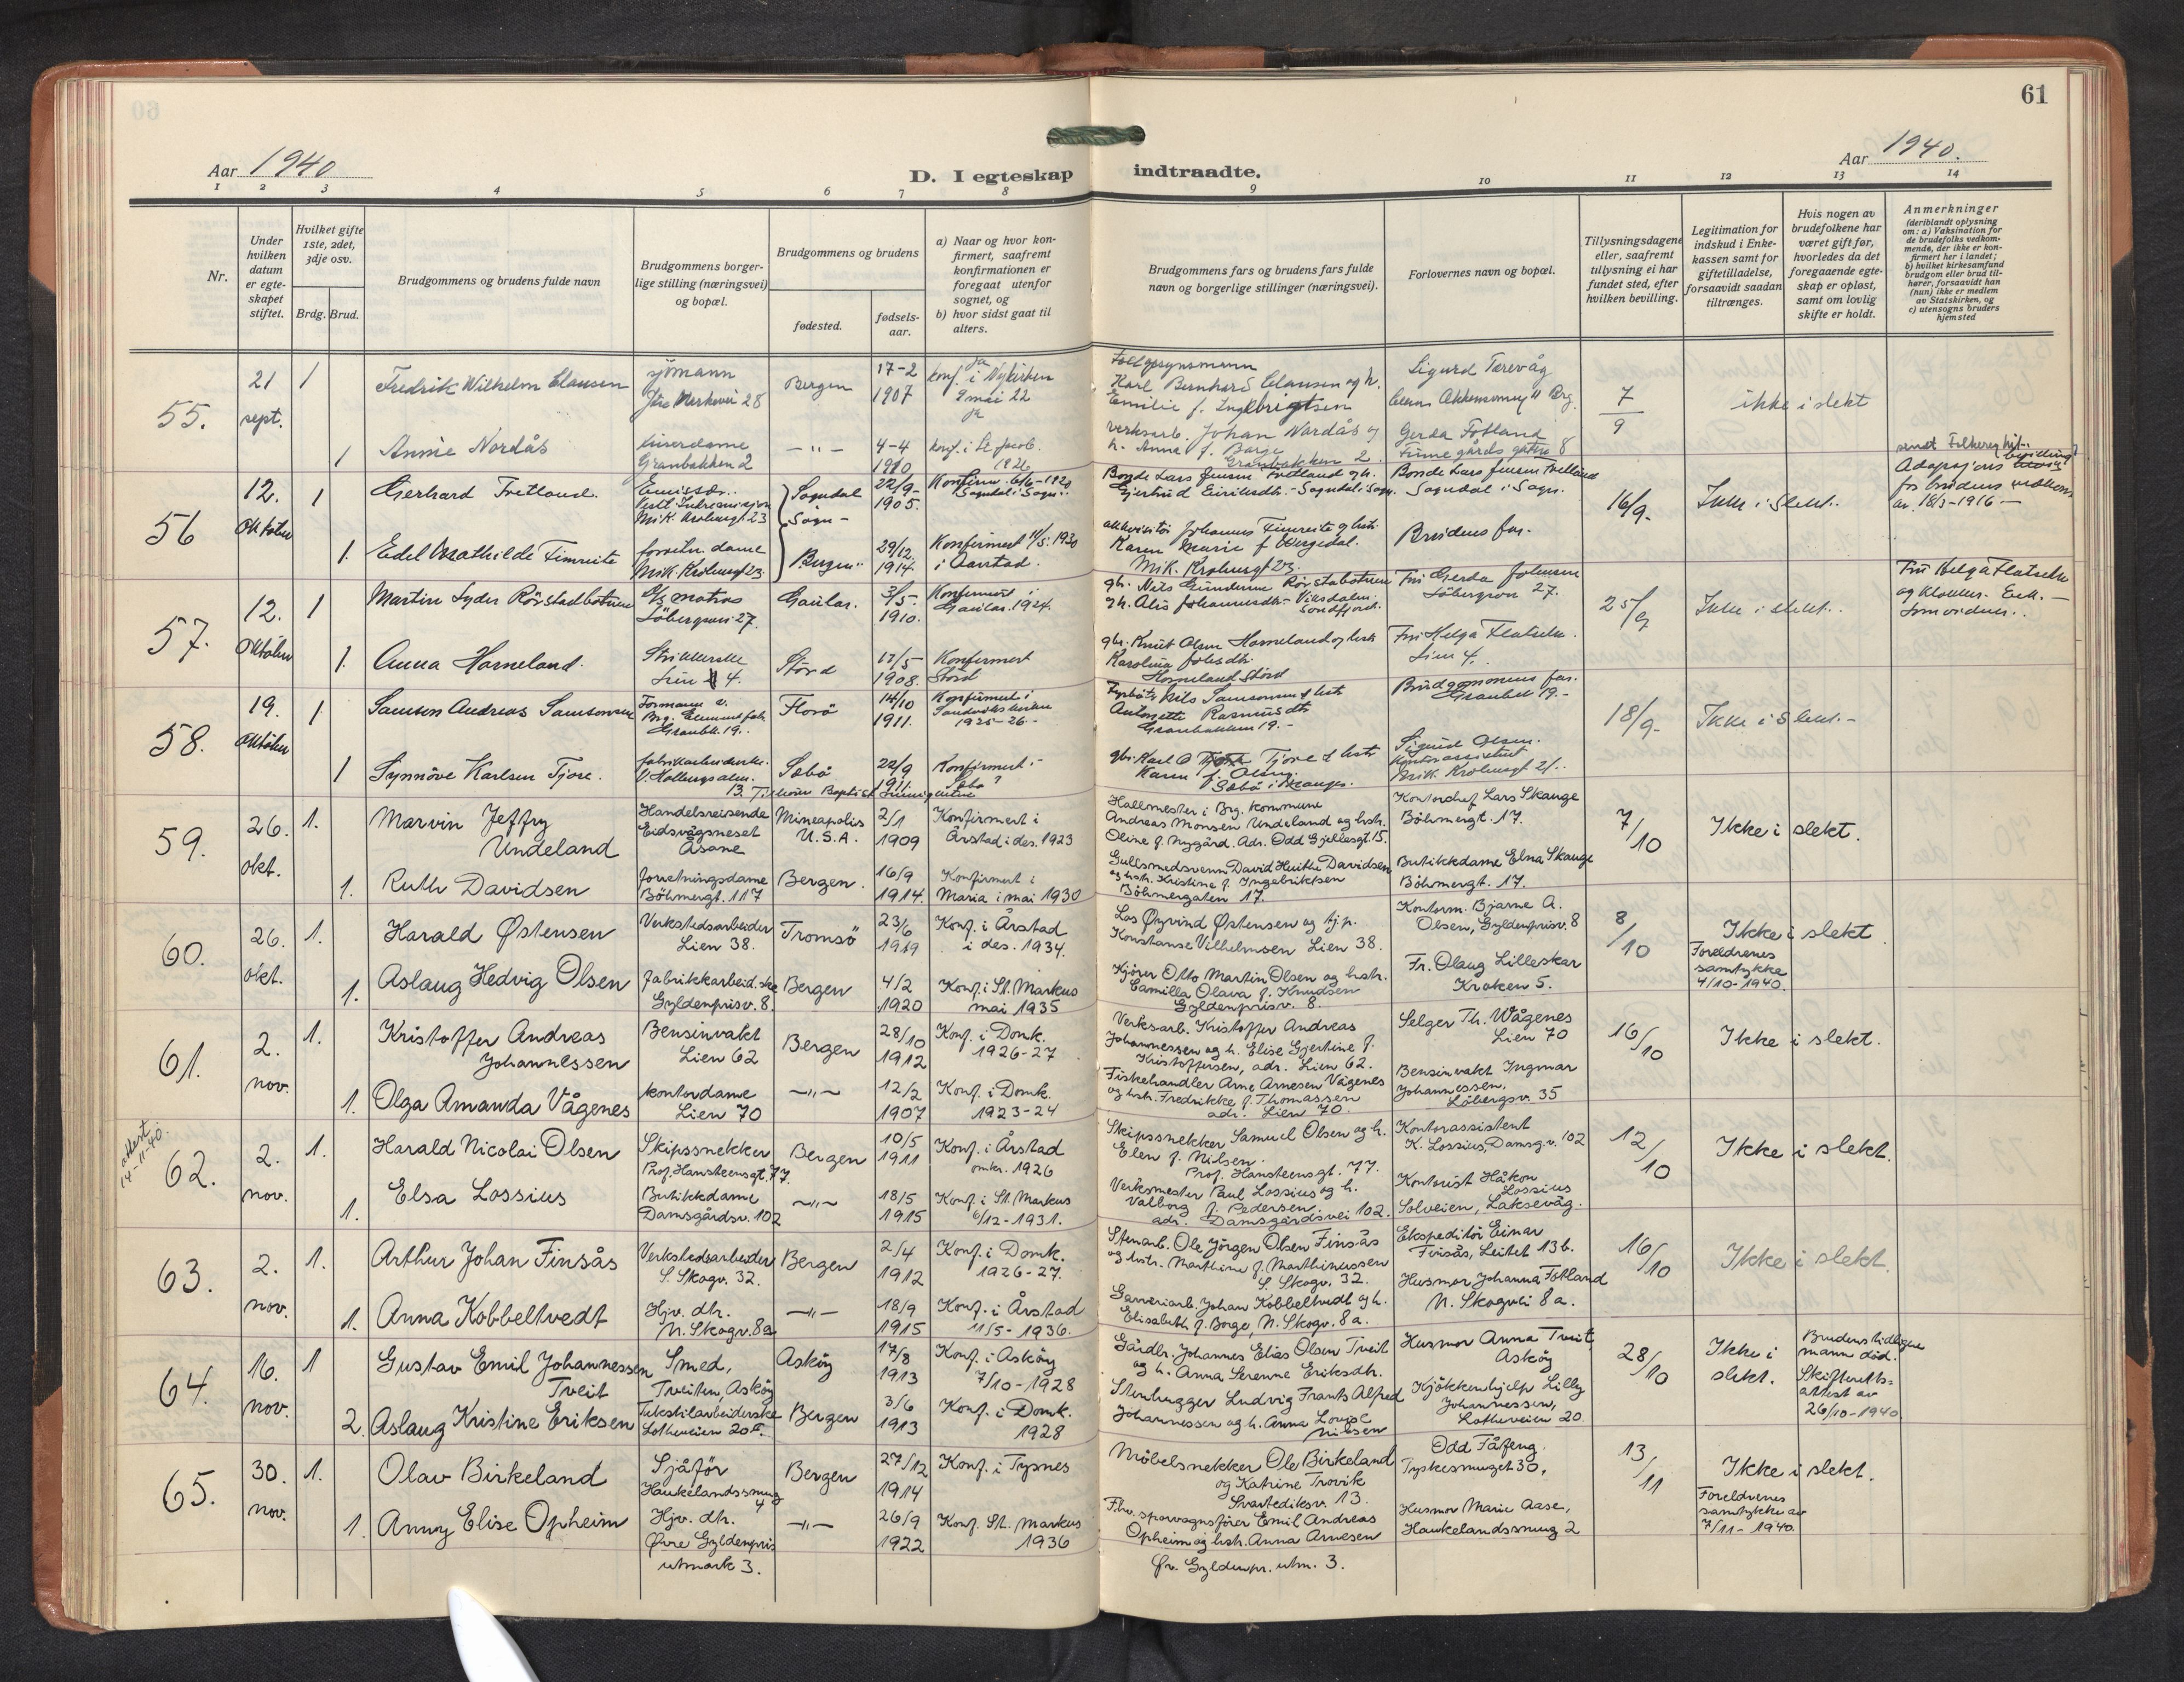 60
61
Aar 1940
D. I egteskap indtraadte.
Aar 1940.
1 2 3 4 5 6 7 8 9 10 11 12 13 14
Nr.
Under hvilken datum er egteskapet stiftet.
Hvilket gifte 1ste, 2det, 3dje osv.
Brdg. Brud.
Brudgommens og brudens fulde navn
Brudgommens borgerlige stilling (næringsvei) og bopæl.
Brudgommens og brudens
fødested.
fødselsaar.
a) Naar og hvor konfirmert, saafremt konfirmationen er foregaat utenfor sognet, og
b) hvor sidst gaat til alters.
Brudgommens fars og brudens fars fulde navn og borgerlige stillinger (næringsvei).
Forlovernes navn og bopæl.
Tillysningsdagene eller, saafremt tillysning ei har fundet sted, efter hvilken bevilling.
Legitimation for indskud i Enkekassen samt for giftetilladelse, forsaavidt saadan tiltrænges.
Hvis nogen av brudefolkene har været gift før, hvorledes da det foregaaende egteskap er opløst, samt om lovlig skifte er holdt.
Anmerkninger
(deriblandt oplysning om: a) Vaksination for de brudefolks vedkommende, der ikke er konfirmert her i landet; b) hvilket kirkesamfund brudgom eller brud tilhører, forsaavidt han (hun) ikke er medlem av Statskirken, og c) utensogns bruders hjemsted
55.
21 sept.
1
Fredrik Wilhelm Clausen
sjömann
Bergen
17-2 1907
konf. i Nykirken
9 mai 22
Karl Bernhard Clausen og h.
Emilie f. Ingebrigtsen
Sigurd Torevåg
7/9
ikke i slekt
1
Annie Nordås
Granbakken 2
-"-
4-4 1910
konf. i St. Jacob. 1926
verksarb. Johan Nordås og
h. Anna f. Borge
Granbakken 2.
Gerda Fotland
56
12. Oktober
1
Gerhard Fretland.
Mik. Krohnsgt 23
Sogndal Sogn-
22/9- 1905.
Konfirm. 6/6-1920
Sogndal i Sogn.
Bonde Lars Jensen Fretland og h.
Gjertrud Eiriksdtr. - Sogndal i Sogn.
Bonde Lars Jensen Fretland
Sogndal i Sogn.
16/9-
Ikke i slekt..
1.
Edel Mathilde Fimreite
forretn. dame
Mik. Krohnsgt 23.
Bergen
29/12. 1914.
Konfirmert 11/5. 1930
i Aarstad.
Johannes Fimreite og hstr.
Karen Marie f.
Mik. Krohnsgt 23.
Brudens far.
57.
12. Oktober
1
Martin Syder Rörstadbotnen
matros
Löbergsvei 27.
Gaular.
3/5- 1910.
Konfirmert i
Gaular. 1924.
Fru Gerda Johnsen
Löbergsvn 27.
25/9
Ikke i slekt..
Fru Helga Flatseth
1.
Anna Horneland.
Strikkerske
Lien 4.
Stord
17/5 1908.
Konfirmert
Stord
gbr. Knut Olsen Horneland og hstr
Karolina
Horneland Stord
Fru Helga Flatseth.
Lien 4.
58.
19. Oktober
1
Samson Andreas Samsonsen
Formann v.
Granbk. 19.
Florö
14/10 1911.
Konfirmert i
Sandvikskirken
1925-26.-
Nils Samsonsen og hstr
Antonette Rasmusdtr
Granbakken 19.-
Brudgommens far.
Granbk 19.-
18/9-
Ikke i slekt.-
1
Synnöve Karlsen Tjore.
fabrikarbeiderske.
Sæbö
22/9 1911.
Konfirmert.-
gbr. Karl O. Tjore og hstr
Karen f. Olsen.
Sigurd Olsen.
Kontorassistent
Mik. Krohnsgt 21.
59.
26. okt.
1.
Marvin Jeffry Undeland
Handelsreisende
Eidsvågsneset
Åsane
Mineapolis U.S.A.
2/1 1909
Konfirmert i
Årstad i des. 1923
Hallmester i Brg. kommune
Andreas Monsen Undeland og hstr.
Oline f. Nygård. Adr. Odd Gjellesgt. 15.
Kontorchef Lars Skauge
Böhmergt. 17.
7/10
Ikke i slekt.
1.
Ruth Davidsen
forretningsdame
Böhmergt. 117
Bergen.
16/9 1914.
Konfirmert i
Maria i mai 1930
Gullsmedsvenn David Huitke Davidsen
og hstr. Kristine f. Ingebriktsen
Böhmergaten 17.
Butikkdame Elna Skauge
Böhmergt. 17.
60.
26. okt.
1.
Harald Østensen
Verkstedsarbeider
Lien 38.
Tromsö
23/6 1919
Konf. i Årstad
i des. 1934.
Los Øyvind Østensen og tj.p.
Konstanse Vilhelmsen Lien 38.
Kontorm. Bjarne A.
Olsen, Gyldenprisv. 8
8/10
Ikke i slekt.
Foreldrenes
samtykke
4/10-1940.
1.
Aslaug Hedvig Olsen
Fabrikkarbeid.ske
Gyldenprisv. 8.
Bergen
4/2 1920
Konf. i St. Markus
mai 1935
Kjörer Otto Martin Olsen og hstr.
Camilla Olava f. Knudsen
Gyldenprisv. 8.
Fr. Olaug Lilleskar
Kroken 5.
61.
2. nov.
1.
Kristoffer Andreas Johannessen
Bensinvakt
Lien 62
Bergen
28/10 1912
Konf. i Domk.
1926-27
Verksarb. Kristoffer Andreas
Johannessen og h. Elise Gjertine f.
Kristoffersen, adr. Lien 62.
Selger Th. Wågenes
Lien 70
16/10
Ikke i slekt.
1.
Olga Amanda Vågenes
kontordame
Lien 70
-"-
12/2 1907
Konf. i Domk.
1923-24
Fiskehandler Arne Arnesen Vågenes
og hstr. Fredrikke f. Thomassen
adr. Lien 70.
Bensinvakt Ingmar
Johannessen,
Löbergsv. 35
attest
14-11-40.
62.
2. nov.
1.
Harald Nicolai Olsen
Skipssnekker
Prof. Hansteensgt. 77.
Bergen
10/5 1911
Konf. i Årstad
omkr. 1926
Skipssnekker Samuel Olsen og h.
Elen f. Nilsen.
Prof. Hansteensgt. 77.
Kontorassistent
K. Lossius, Damsg.v. 102
12/10
Ikke i slekt.
1.
Elsa Lossius
Butikkdame
Damsgårdsv. 102
-"-
18/5 1915
Konf. i St. Markus
6/12-1931.
Verksmester Paul Lossius og h.
Valborg f. Pedersen.
adr. Damsgårdsvei 102.
Kontorist Håkon
Lossius
Solveien, Laksevåg.
63.
2. nov.
1.
Arthur Johan Finsås
Verkstedsarbeider
S. Skogv. 32.
Bergen
2/4 1912
Konf. i Domk.
1926-27.
Stenarb. Ole Jörgen Olsen Finsås
og hstr. Marthine f. Marthinussen
S. Skogv. 32.
Ekspeditör Einar
Finsås, Leitet 13b.
16/10
Ikke i slekt.
1.
Anna Kobbeltvedt
Hjv. dtr.
N. Skogv. 8a
-"-
18/9 1915
Konf. i Årstad
11/5-1936.
Garveriarb. Johan Kobbeltvedt og h.
Elisabeth f. Borge, N. Skogv. 8a.
Husmor Johanna Fotland
N. Skogvei 8a.
64.
16. nov.
1
Gustav Emil Johannessen Tveit
Smed,
Tveiten, Asköy
Asköy
17/8 1913
Konf. i Asköy
7/10-1928
Gårdbr. Johannes Elias Olsen Tveit
og h. Anna Serenne Eriksdtr.
Husmor Anna Tveit,
Asköy
28/10
Ikke i slekt.
Brudens tidligere
mann död.
Skifteretts=
attest av
26/10-1940
2.
Aslaug Kristine Eriksen
Tekstilarbeiderske
Lotheveien 20 II.
Bergen
3/6 1913
Konf. i Domk.
1928
Stenhugger Ludvig Frants Alfred
Johannessen og h. Anna Lovise
Nilsen
Kjökkenhjelp Lilly
Johannessen,
Lotheveien 20.
65.
30. nov.
1.
Olav Birkeland
Sjåför
Haukelandssmug 4
Bergen
27/12 1914
Konf. i Tysnes
Möbelsnekker Ole Birkeland
og Katrine Trovik
Svartediksv. 13.
Odd Fåfeng.
Tyskesmuget 30,
13/11
Ikke i slekt.
Foreldrenes
samtykke av
7/11-1940.
1.
Anny Elise Opheim
Hjv. dtr.
Øvre Gyldenpris
utmark 3.
-"-
26/9 1922
Konf. St. Markus
1936
Fhv. sporvognsförer Emil Andreas
Opheim og hstr. Anna Arnesen
Øv. Gyldenpr. utm. 3.
Husmor Marie Aase,
Haukelandssmug 2